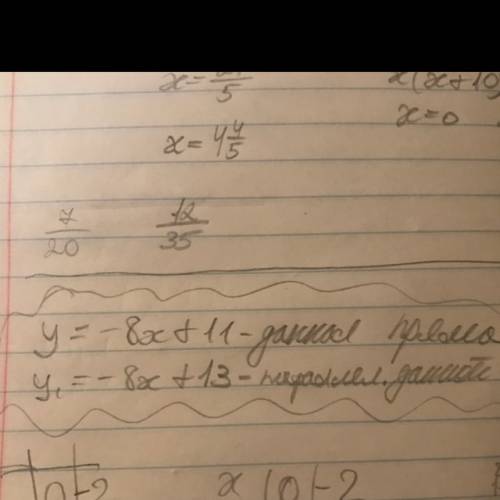 x =
5
x(x+10)
x=0
x = 4 4/5
7/20 12/35
y = -8x + 11 - данная прямо
y₁ = -8x + 13 - параллел. данной
10 | -2 x | 0 | -2